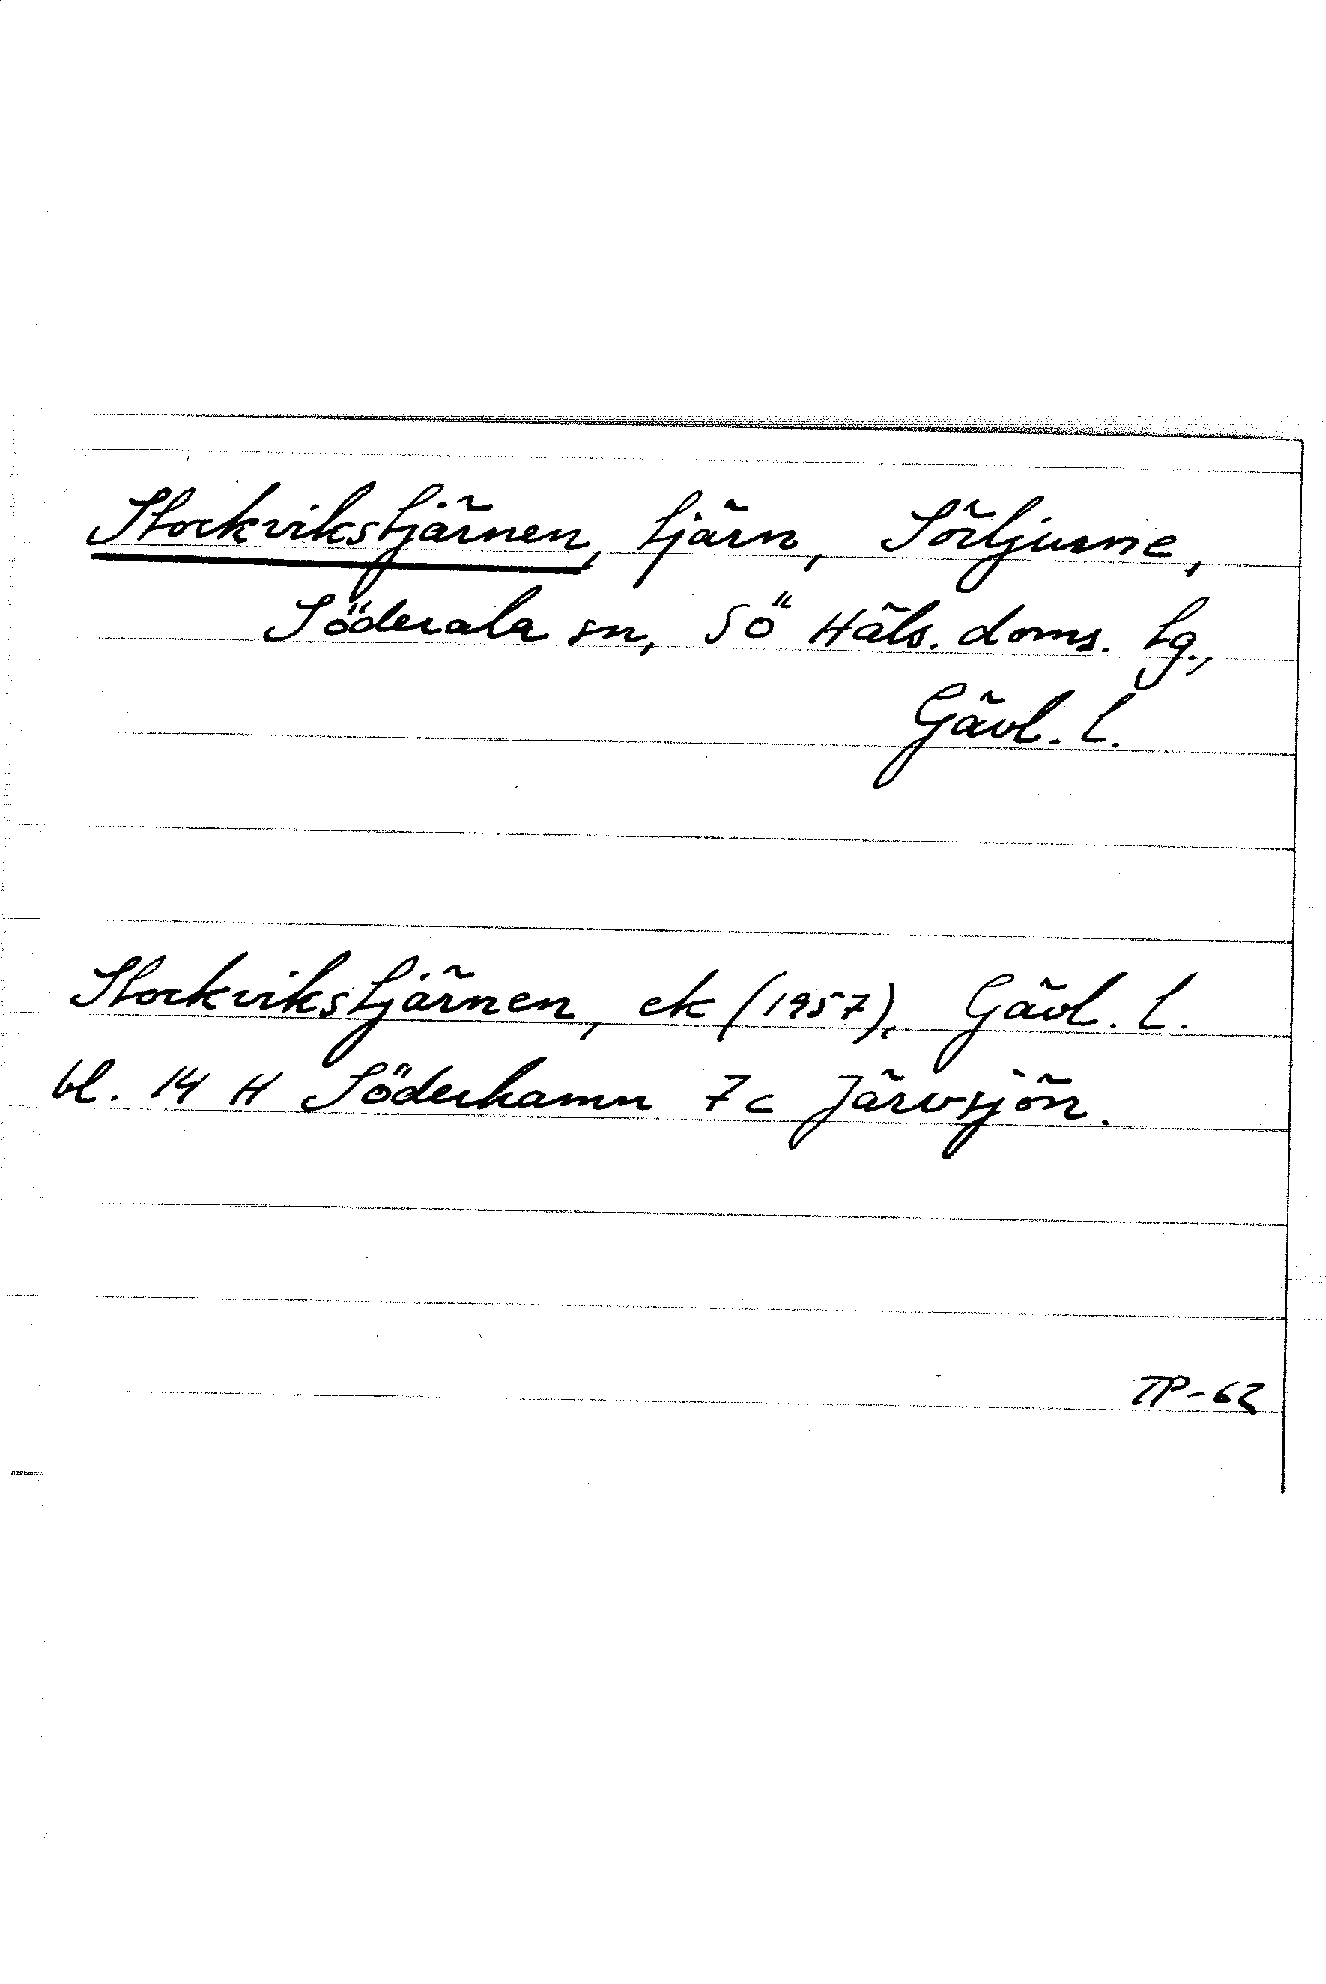 Stockvikstjärnen, tjärn, Sörljusne,
Söderala sn, SÖ Häls. doms. tg.,
Gävl. l.
Stockvikstjärnen, ek (1957), Gävl. l.
bl. 14 H Söderhamn 7c Järvsjön.
TP-62